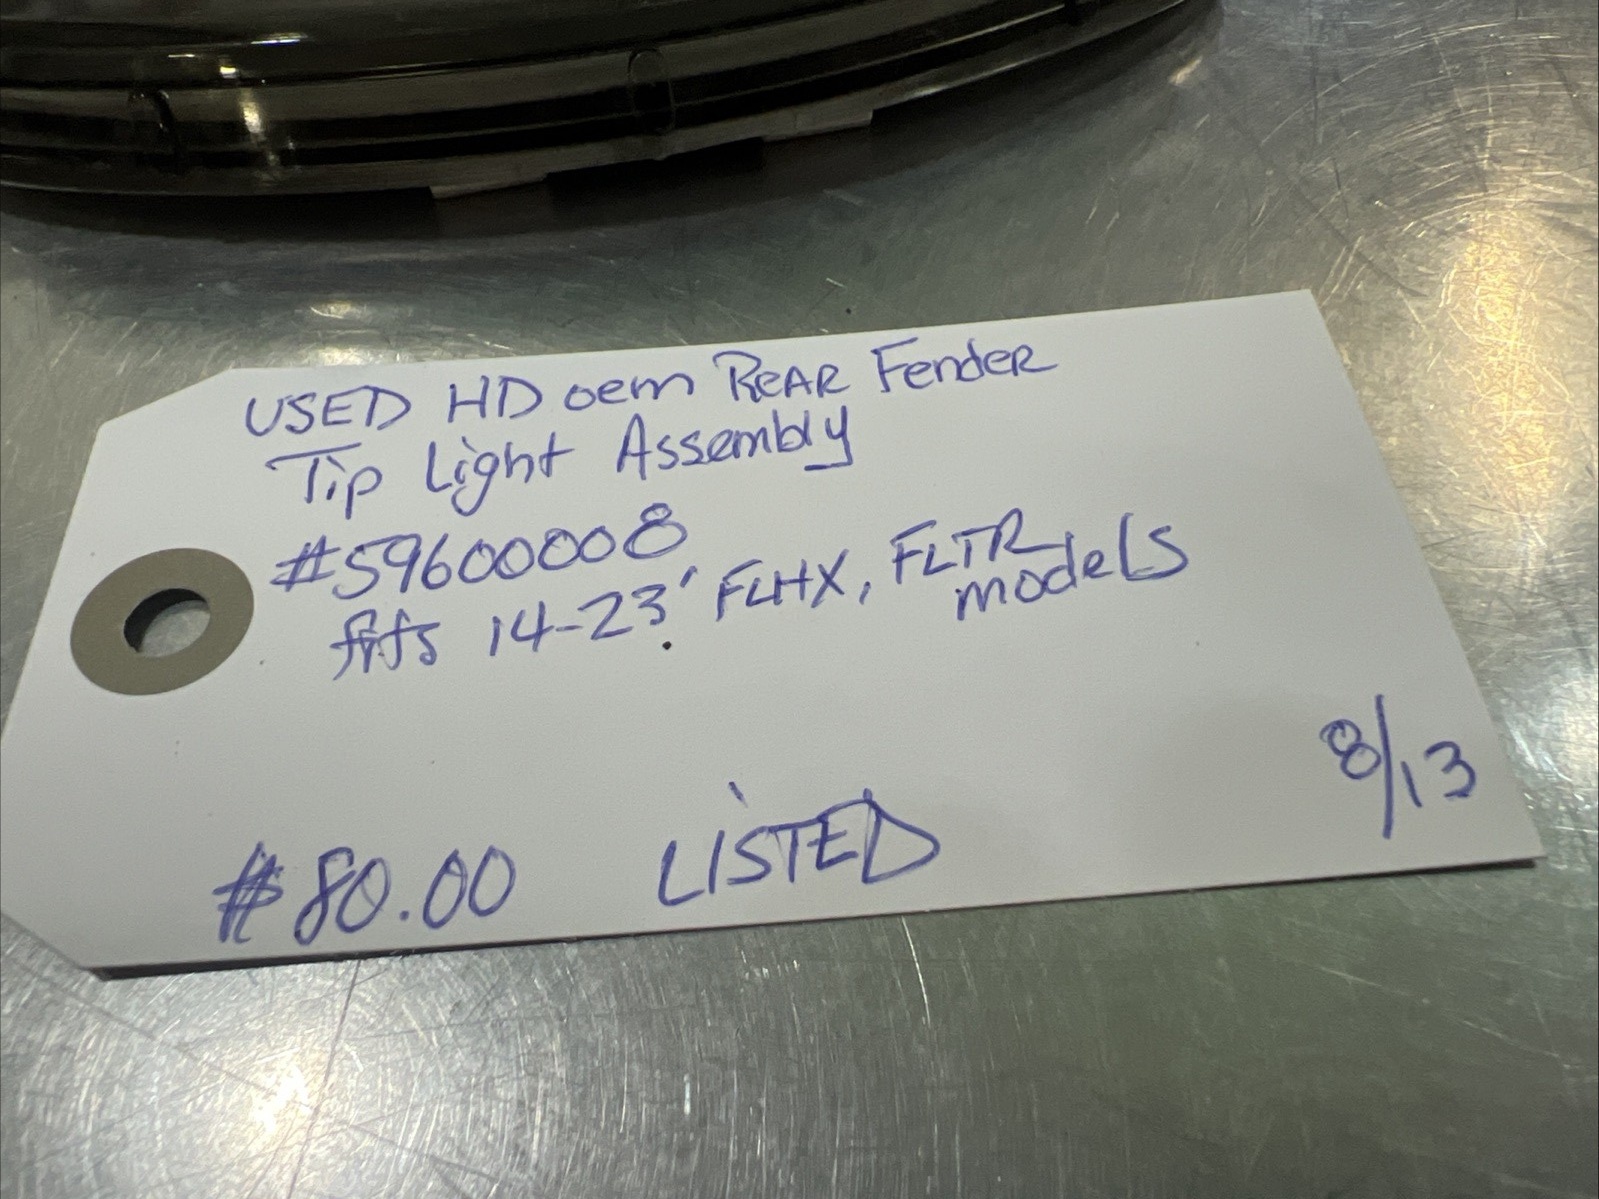 USED HD oem REAR FendeR
Tip Light Assembly
#59600008
fits 14-23' FLHX, FLTR
models
8/13
$80.00 LISTED